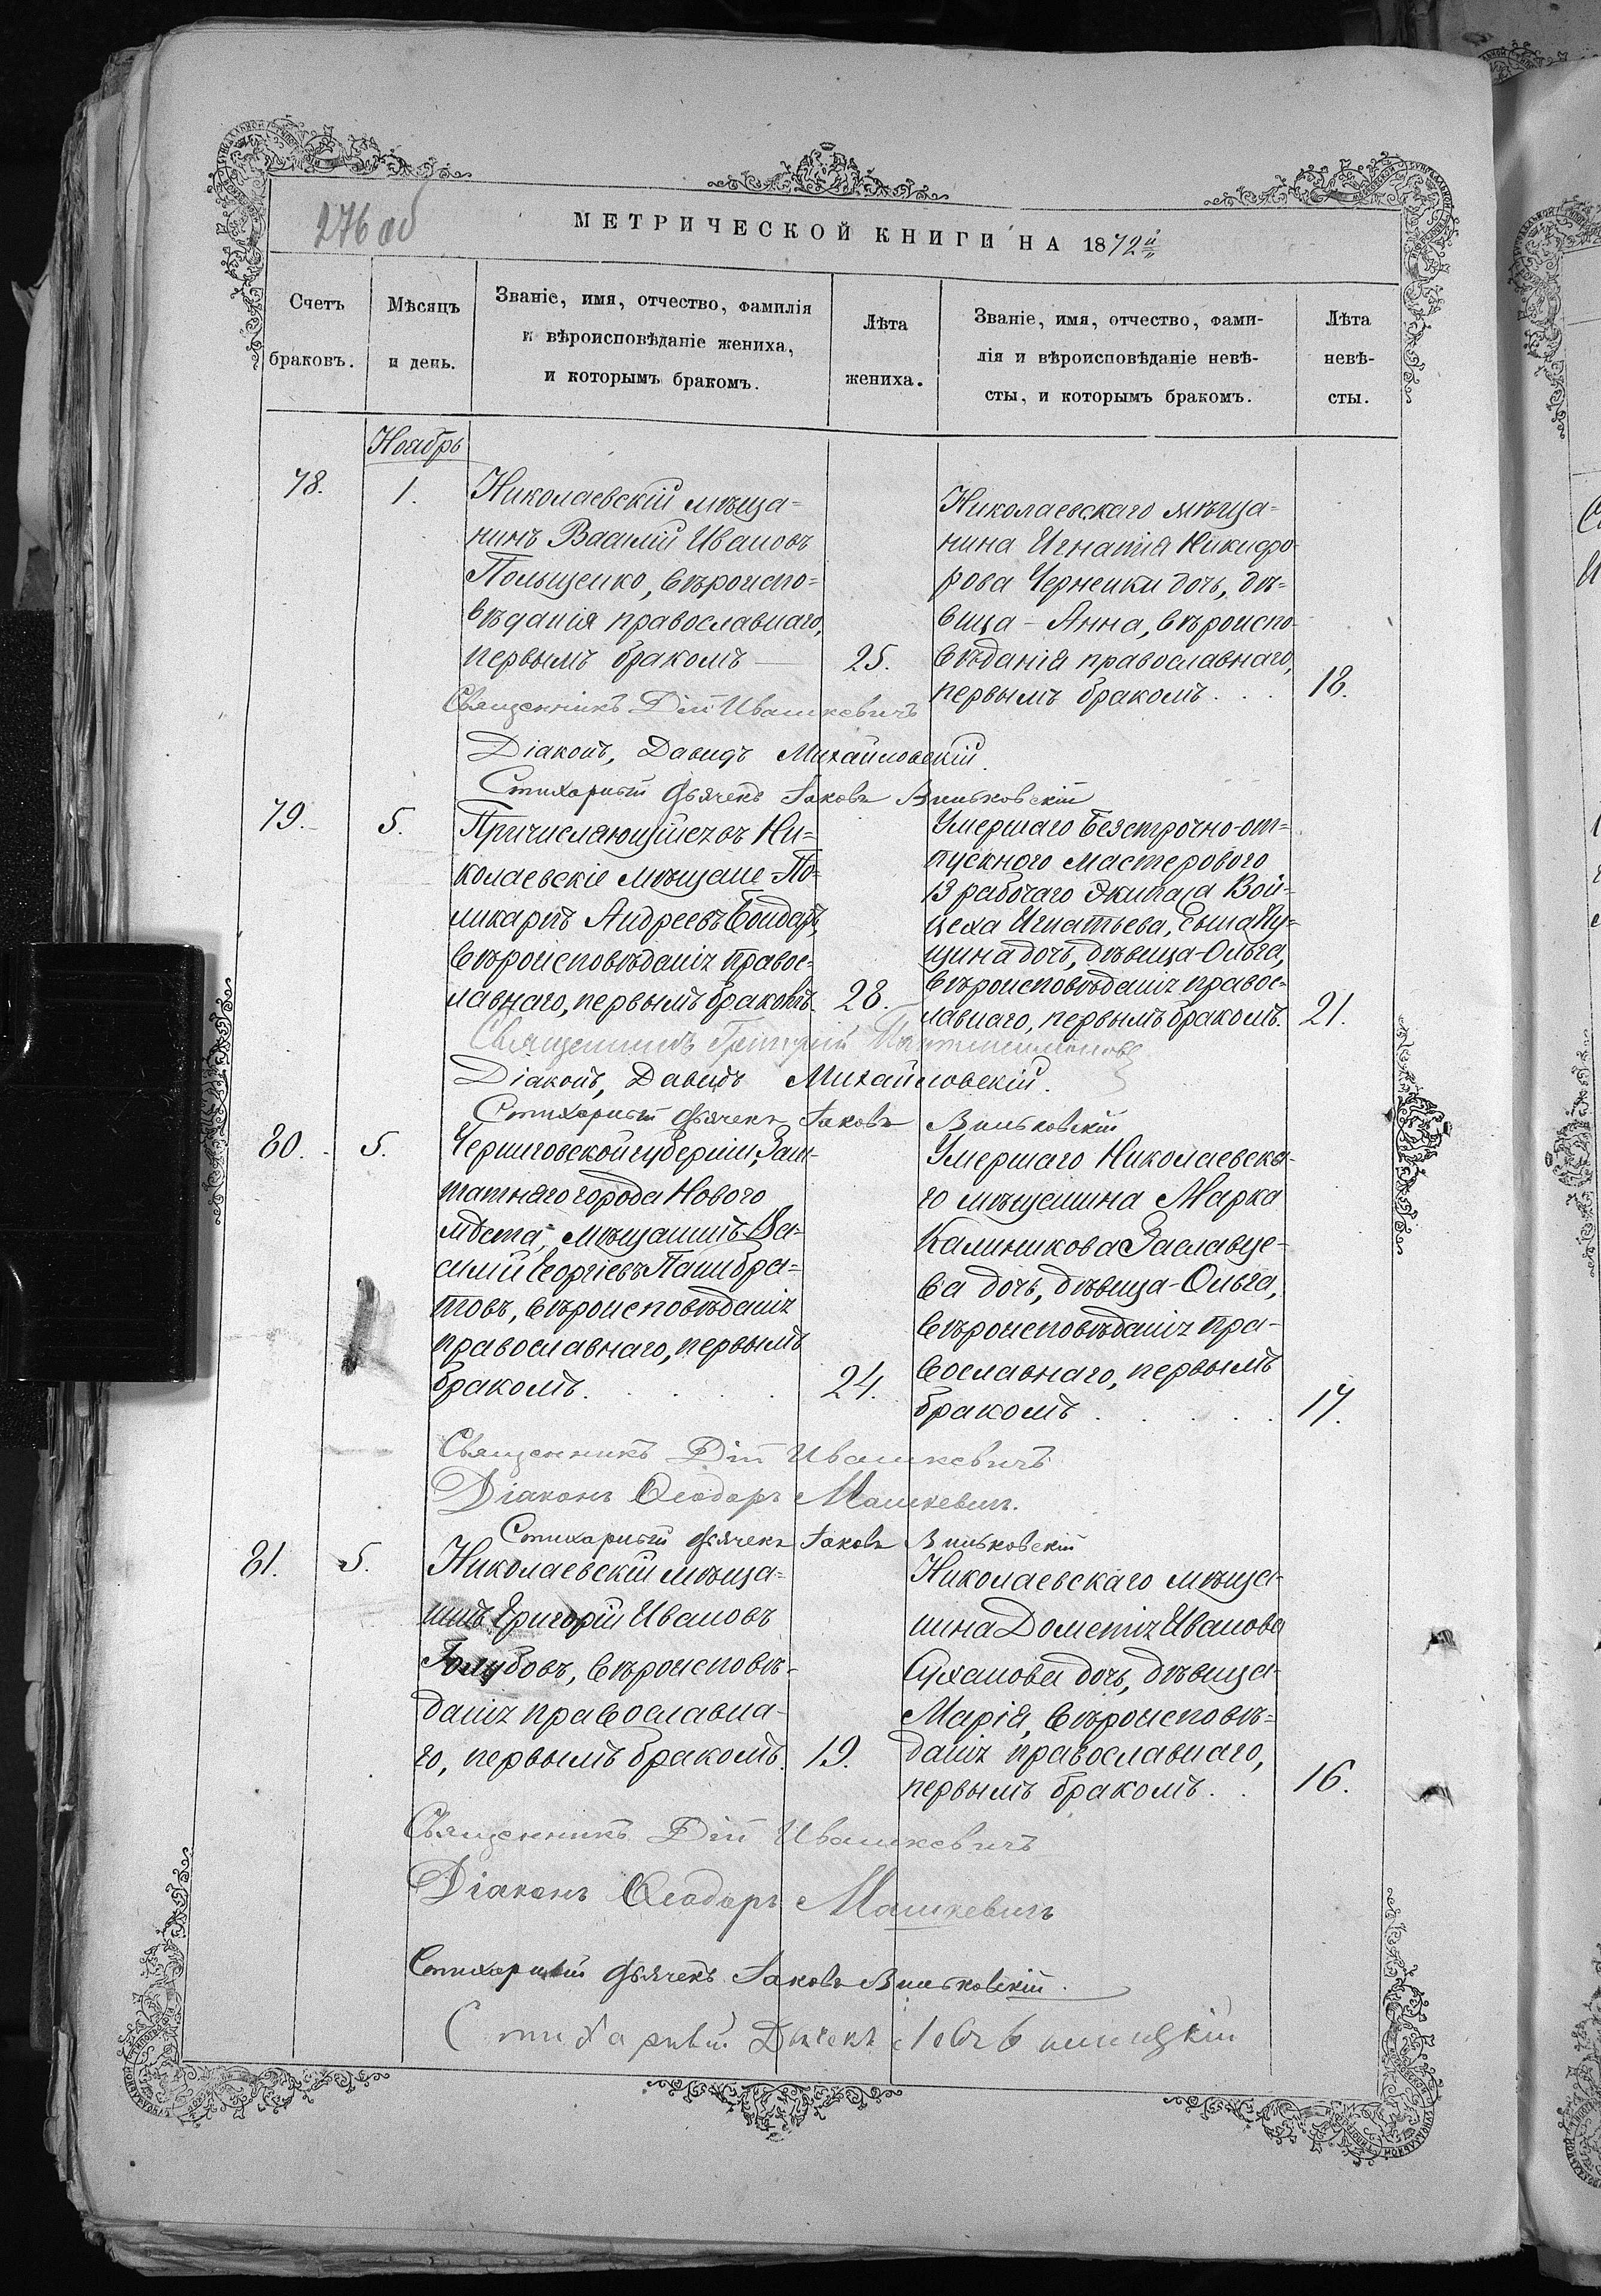 276 об
МЕТРИЧЕСКОЙ КНИГИ НА 1872й
Счетъ браковъ.
Мѣсяцъ и день.
Званіе, имя, отчество, фамилія
и вѣроисповѣданіе жениха,
и которымъ бракомъ.
Лѣта жениха.
Званіе, имя, отчество, фами-
лія и вѣроисповѣданіе невѣ-
сты, и которымъ бракомъ.
Лѣта невѣ-
сты.
Ноябрь
78.
1.
Николаевскій мѣща=
нинъ Василій Ивановъ
Польщенко, вѣроиспо=
вѣданія православнаго,
первымъ бракомъ —
25.
Николаевскаго мѣща=
нина Игнатія Никифо-
рова Черненки дочь, дѣ=
вица - Анна, вѣроиспо-
вѣданія православнаго,
первымъ бракомъ . . .
18.
Священникъ Дій Ивашкевичъ
Діаконъ, Давидъ Михайловскій.
Стихарный дьячекъ Іаковъ Виньковскій
79.
5.
Причисляющійся въ Ни=
колаевскіе мѣщане По=
ликарпъ Андреевъ Бондарь,
вѣроисповѣданія правос=
лавнаго, первымъ бракомъ.
28.
Умершаго безсрочно-от=
пускного мастерового
13 рабочаго экипажа Вой=
цеха Игнатьева, сына
дочь, дѣвица-Ольга,
вѣроисповѣданія правос=
лавнаго, первымъ бракомъ.
21.
Священникъ Григорій
Діаконъ, Давидъ Михайловскій.
Стихарный дьячекъ Іаковъ Виньковскій
80.
5.
Черниговской губерніи, Заш-
татнаго города Нового
мѣста, мѣщанинъ Ва=
силій Георгіевъ Панибра=
товъ, вѣроисповѣданія
православнаго, первымъ
бракомъ. . . . . .
24.
Умершаго Николаевска-
го мѣщанина Марка
Калиникова Заславце-
ва дочь, дѣвица-Ольга,
вѣроисповѣданія пра-
вославнаго, первымъ
бракомъ . . . . .
17.
Священникъ Дій Ивашкевичъ
Діаконъ Ѳеодоръ Машкевичъ.
Стихарный дьячекъ Іаковъ Виньковскій
81.
5.
Николаевскій мѣща=
нинъ Григорій Ивановъ
Голубовъ, вѣроисповѣ-
данія православна-
го, первымъ бракомъ.
19.
Николаевскаго мѣща-
нина Дометія Иванова
Суханова дочь, дѣвица-
Марія, вѣроисповѣ=
данія православнаго,
первымъ бракомъ. .
16.
Священникъ Дій Ивашкевичъ
Діаконъ Ѳеодоръ Машкевичъ
Стихарный дьячекъ Іаковъ Виньковскій.
Стихарный Дьячекъ